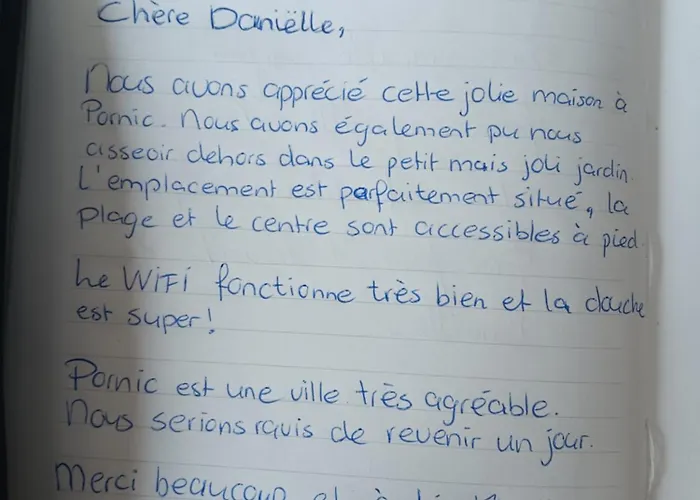 Chère Daniëlle,
Nous avons apprécié cette jolie maison à
Pornic. Nous avons également pu nous
asseoir dehors dans le petit mais joli jardin.
L'emplacement est parfaitement situé, la
plage et le centre sont accessibles à pied.
Le WiFi fonctionne très bien et la douche
est super!
Pornic est une ville très agréable.
Nous serions ravis de revenir un jour.
Merci beaucoup et à